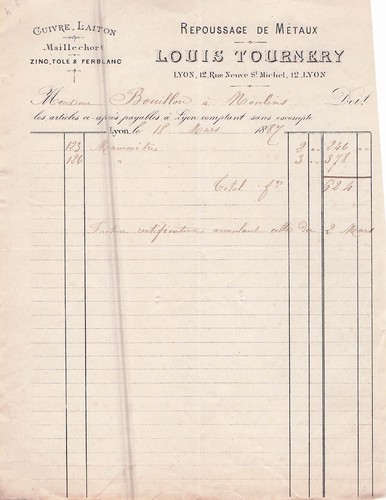 CUIVRE, LAITON
Maillechort
ZINC, TOLE & FERBLANC
REPOUSSAGE DE METAUX
LOUIS TOURNERY
LYON, 12, Rue Neuve St Michel, 12, LYON
Monsieur Bouillon à Moulins Doit
les articles ci-après payables à Lyon comptant sans escompte
Lyon, le 18 Mars 1887
123 Manomètres 2 " 246
126 " 3 " 378
Total frs 624
Facture rectificative annulant celle du 2 Mars